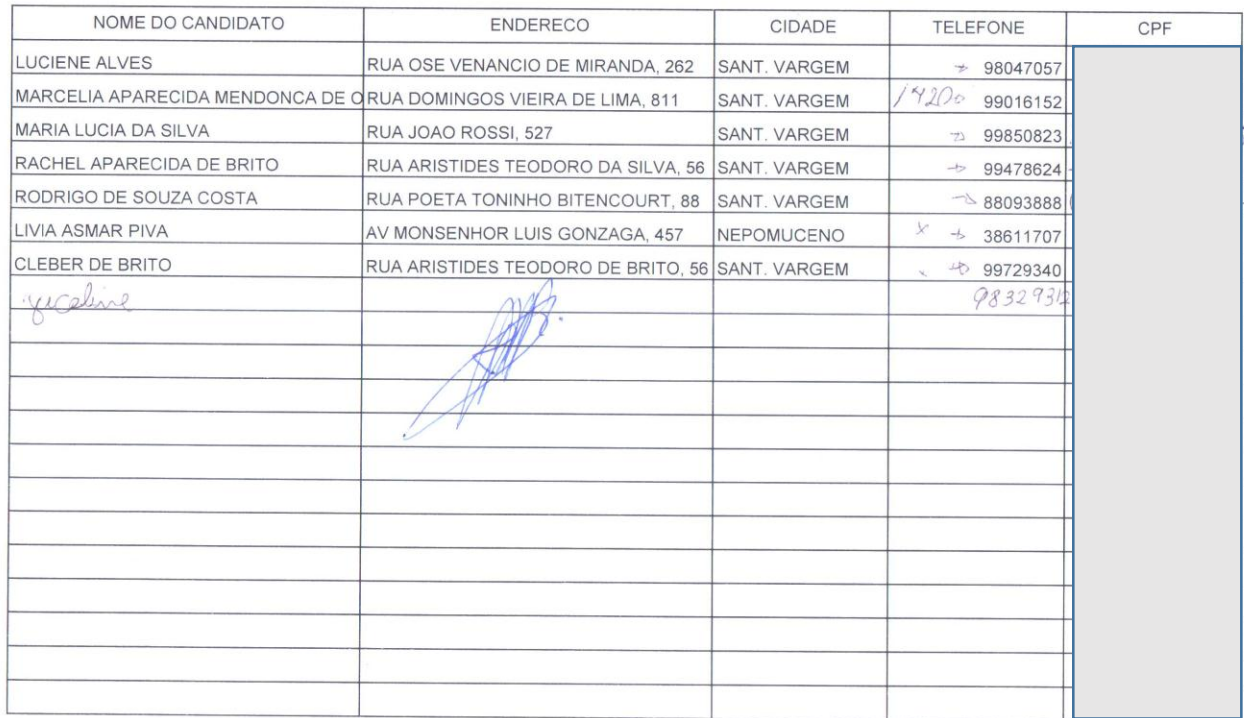 NOME DO CANDIDATO ENDERECO CIDADE TELEFONE CPF
LUCIENE ALVES RUA OSE VENANCIO DE MIRANDA, 262 SANT. VARGEM 98047057
MARCELIA APARECIDA MENDONCA DE O RUA DOMINGOS VIEIRA DE LIMA, 811 SANT. VARGEM 99016152
MARIA LUCIA DA SILVA RUA JOAO ROSSI, 527 SANT. VARGEM 99850823
RACHEL APARECIDA DE BRITO RUA ARISTIDES TEODORO DA SILVA, 56 SANT. VARGEM 99478624
RODRIGO DE SOUZA COSTA RUA POETA TONINHO BITENCOURT, 88 SANT. VARGEM 88093888
LIVIA ASMAR PIVA AV MONSENHOR LUIS GONZAGA, 457 NEPOMUCENO 38611707
CLEBER DE BRITO RUA ARISTIDES TEODORO DE BRITO, 56 SANT. VARGEM 99729340
98329312